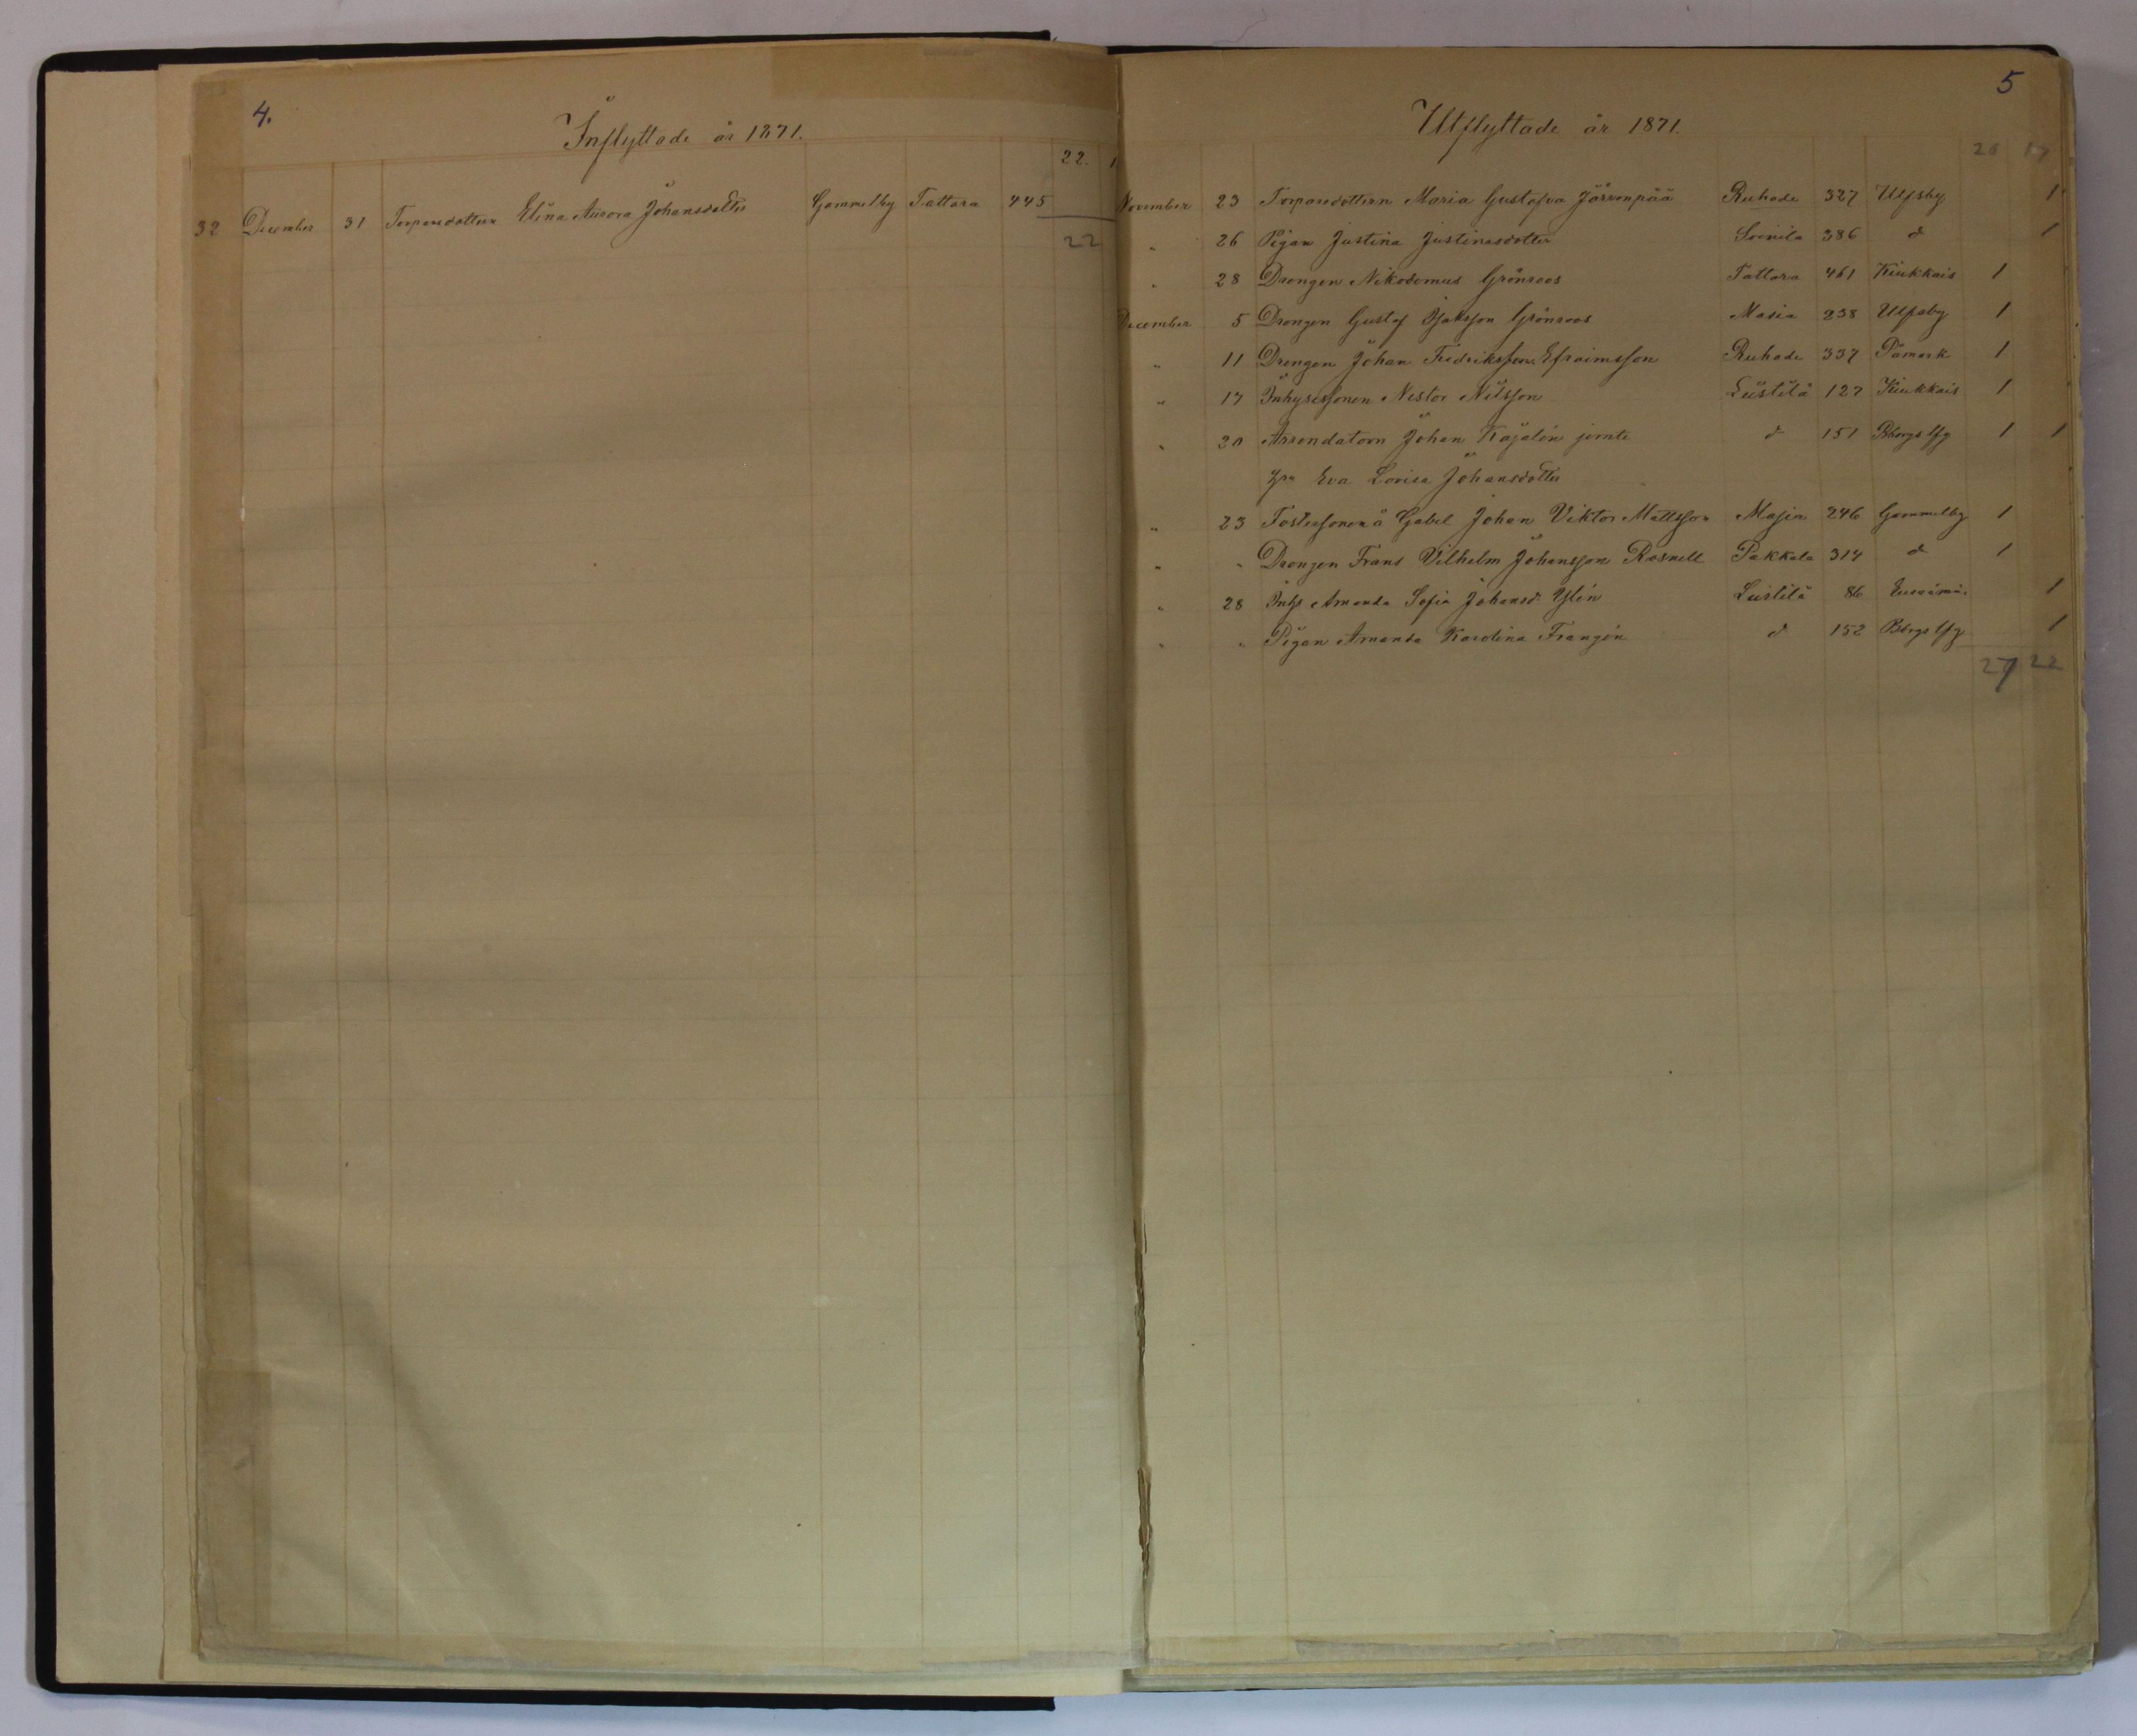 4.
Inflyttade år 1871.
22. 1
32 December 31 Torparedottern Elina Aurora Johansdotter Gammelby Tattara 445
22
5
Utflyttade år 1871.
20 17
November 23 Torparedottern Maria Gustafva Järvenpää Ruhade 327 Ulfsby 1
" 26 Pigan Justina Justinasdotter Soinila 386 d 1
" 28 Drengen Nikodemus Grönroos Tattara 461 Kiukkais 1
December 5 Drengen Gustaf Grönroos Masia 238 Ulfsby 1
" 11 Drengen Johan Fredriksson Efraimsson Ruhade 337 Påmark 1
" 17 Inhysessonen Nestor Nilsson Leistilä 127 Kiukkais 1
" 20 Arrendatorn Johan Kajalén jemte d 151 Bborgs lfg 1 1
Eva Lovisa Johansdotter
" 23 Fostersonen å Gabel Johan Viktor Mattsson Masia 246 Gammelby 1
" " Drengen Frans Vilhelm Johansson Rosnell Pakkala 314 d 1
" 28 Inhs Amanda Sofia Johansd. Ylén Leistilä 86 1
" " Pigan Amanda Karolina Frangén d 152 Bborgs lfg 1
27 22